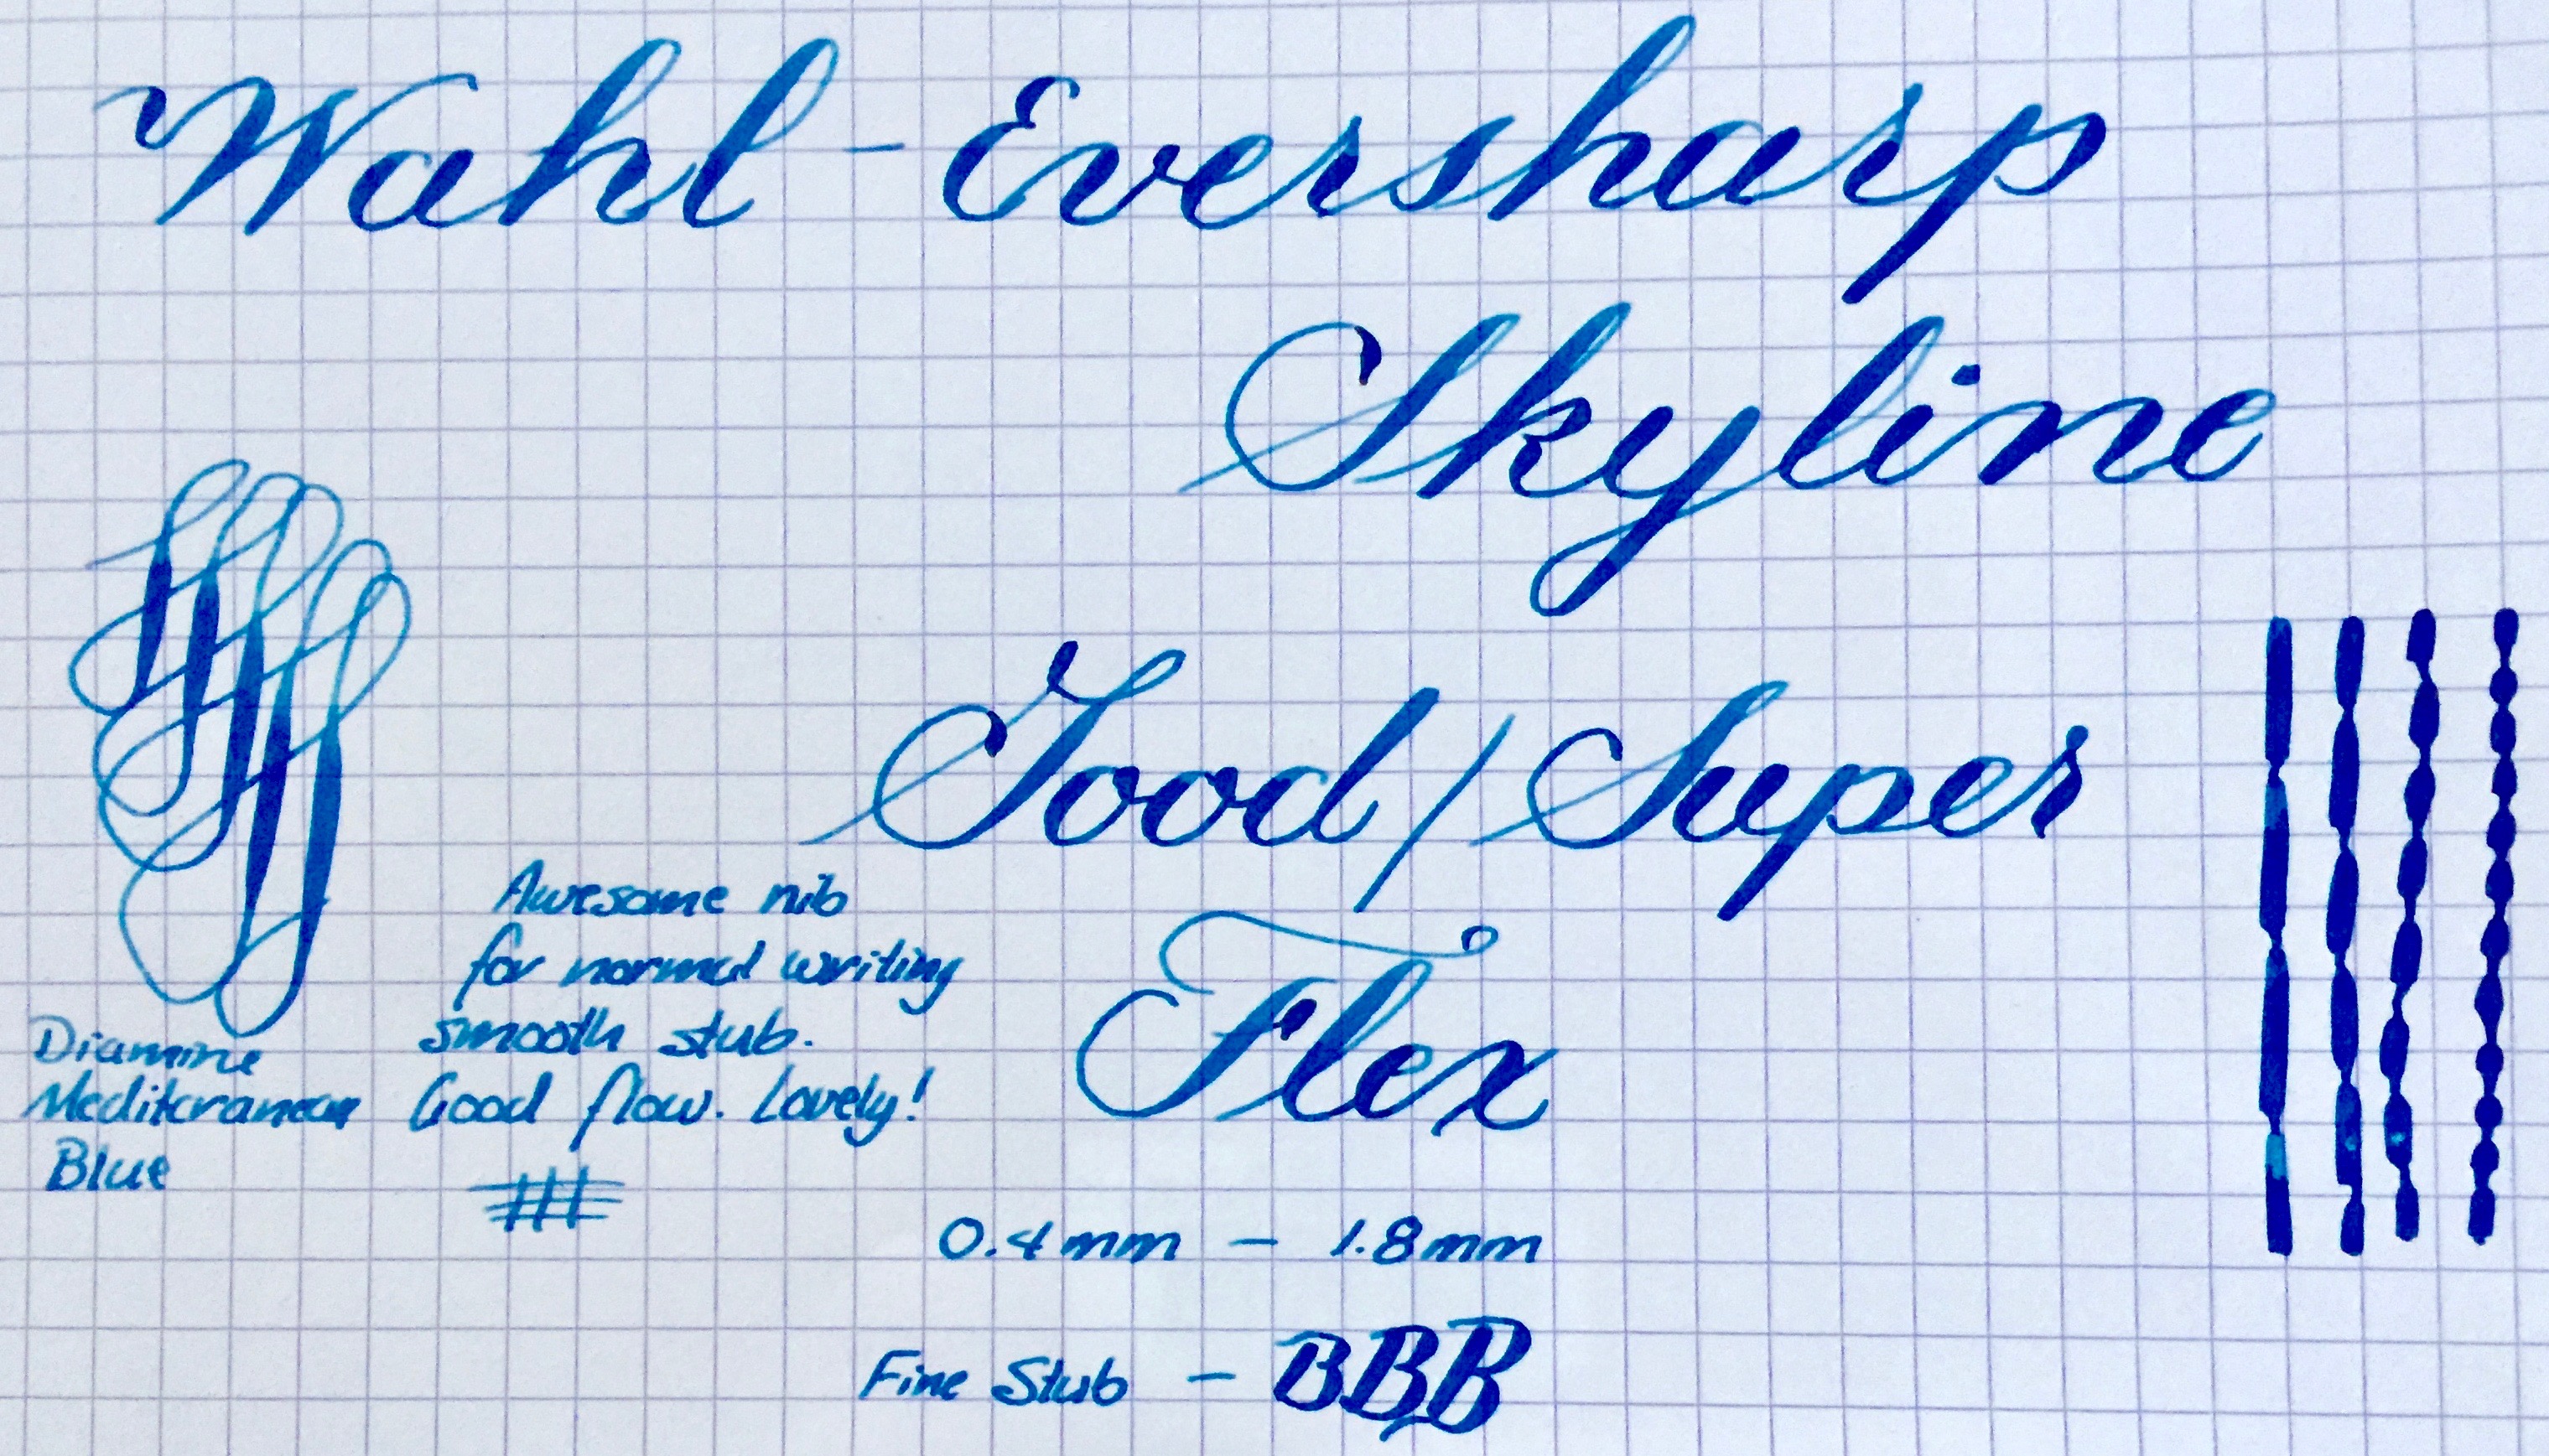 Wahl - Eversharp
Skyline
Good / Super
Flex
Awesome nib
for normal writing
smooth stub.
Good flow. Lovely!
Diamine
Mediteranean
Blue
0.4mm - 1.8mm
Fine Stub - BBB